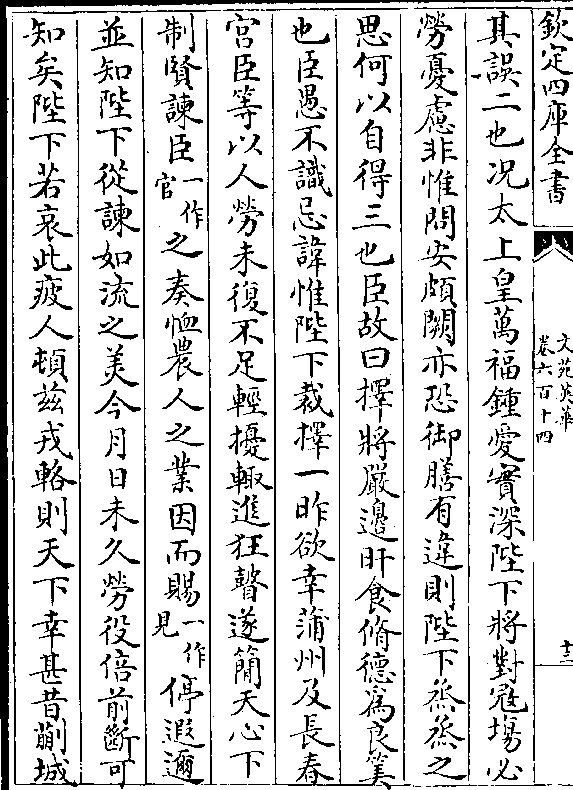 欽定四庫全書
文苑英華
卷六百十四
十二
其誤二也况太上皇萬福鍾愛實深陛下將對冦塲必
勞憂慮非惟問安頗闕亦恐御膳有違則陛下烝烝之
思何以自得三也臣故曰擇將嚴邊旰食脩德為良筭
也臣愚不識忌諱惟陛下裁擇一昨欲幸蒲州及長春
宫臣等以人勞未復不足輕擾輙進狂瞽遂簡天心下
制賢諫臣一作官之奏恤農人之業因而賜一作見停遐邇
並知陛下從諫如流之美今月日未久勞役倍前斷可
知矣陛下若哀此疲人頓兹戎輅則天下幸甚昔蒯城